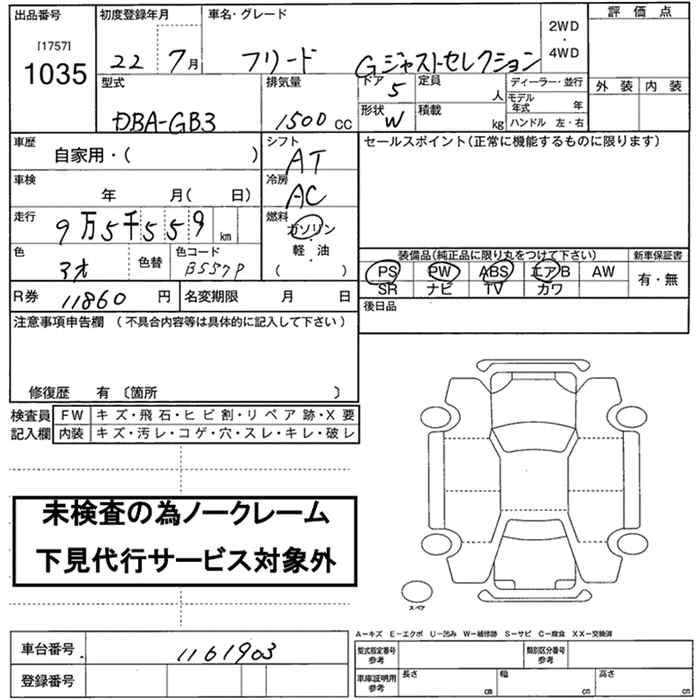 出品番号 初度登録年月 車名・グレード 2WD ・ 4WD 評価点
[1757]
1035 22 7月 フリード Gジャストセレクション
型式 排気量 ドア 5 定員 人 ディーラー・並行 外装 内装
DBA-GB3 1500 CC 形状 W 積載 kg モデル年式 年
ハンドル 左・右
車歴 自家用・( ) シフト AT セールスポイント(正常に機能するものに限ります)
車検 年 月( 日) 冷房 AC
走行 9万5千559 km 燃料 ガソリン・軽・油 ( )
色 色替 色コード B557P 装備品(純正品に限り丸をつけて下さい) 新車保証書
PS PW ABS エアB AW 有・無
R券 11860 円 名変期限 月 日 SR ナビ TV カワ
注意事項申告欄 (不具合内容等は具体的に記入して下さい) 後日品
修復歴 有 〔箇所 〕
検査員 FW キズ・飛石・ヒビ割・リペア跡・X要
記入欄 内装 キズ・汚レ・コゲ・穴・スレ・キレ・破レ
未検査の為ノークレーム
下見代行サービス対象外
スペア
A-キズ E-エクボ U-凹み W-補修跡 S-サビ C-腐食 XX-交換済
車台番号 1161903 型式指定番号 参考 類別区分番号 参考
登録番号 車庫証明用 参考 長さ cm 幅 cm 高さ cm